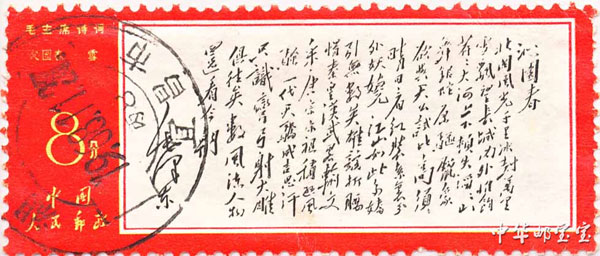 毛主席诗词
沁园春 雪
8分
中国
人民邮政
沁园春
北国风光千里冰封万里
雪飘望长城内外惟余莽
莽大河上下顿失滔滔山
舞银蛇原驱腊象
欲与天公试比高须
晴日看红装素裹分
外妖娆 江山如此多娇
引无数英雄竞折腰
惜秦皇汉武略输文
采唐宗宋祖稍逊风
骚一代天骄成吉思汗
只识弯弓射大雕
俱往矣数风流人物
还看今朝
毛泽东